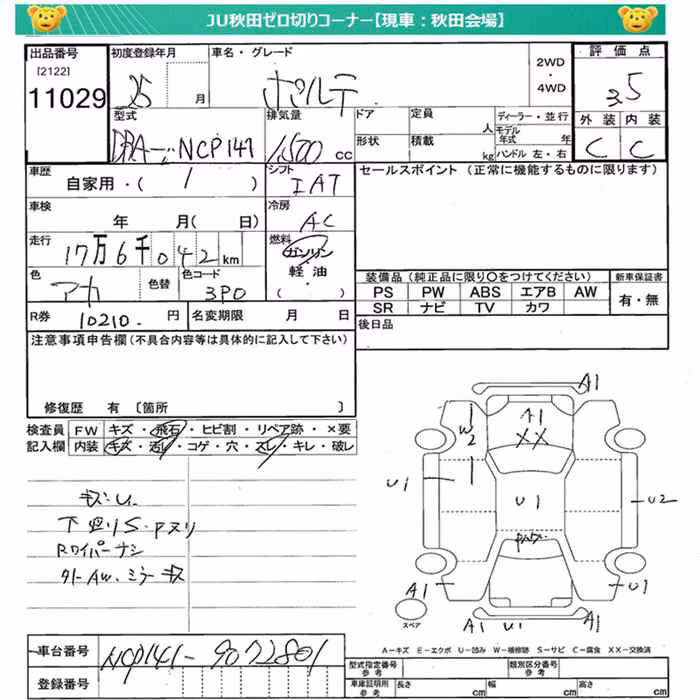 JU秋田ゼロ切りコーナー【現車：秋田会場】
出品番号
[2122]
11029
初度登録年月
25 月
車名・グレード
ポルテ
2WD
・
4WD
評価点
3.5
外装 内装
C C
型式
DBA- NCP141
排気量
1500 cc
ドア
形状
定員
人
積載
kg
ディーラー・並行
モデル年式 年
ハンドル 左・右
車歴
自家用・( )
シフト
IAT
セールスポイント (正常に機能するものに限ります)
車検
年 月( 日)
冷房
AC
走行
17万6千042km
燃料
ガソリン
・
軽油
・
( )
色
アカ
色替
色コード
3P0
装備品 (純正品に限り○をつけてください)
PS PW ABS エアB AW
SR ナビ TV カワ
新車保証書
有・無
R券
10210. 円
名変期限 月 日
後日品
注意事項申告欄(不具合内容等は具体的に記入して下さい)
修復歴 有 〔箇所 〕
検査員
記入欄
FW キズ・飛石・ヒビ割・リペア跡・×要
内装 キズ・汚レ・コゲ・穴・スレ・キレ・破レ
キズ・U.
下回りS・Pヌリ
Rワイパーナシ
A1
A1
XX
W2
U1
U1
U2
A1
U1
A1 U1 A1
スペア
A－キズ E－エクボ U－凹み W－補修跡 S－サビ C－腐食 XX－交換済
車台番号
NCP141-9072801
登録番号
型式指定番号
参考
類別区分番号
参考
車庫証明用
参考
長さ cm
幅 cm
高さ cm